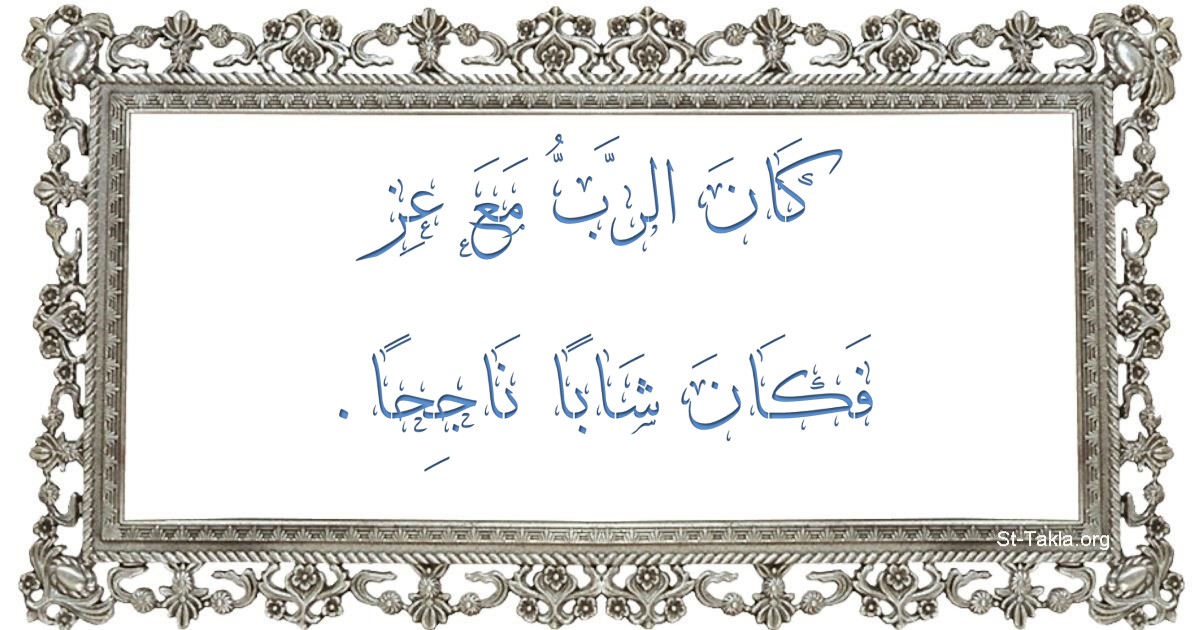 كَانَ الرَّبُّ مَعَ عِزِ
فَكَانَ شَابًا نَاجِحًا .
St-Takla.org